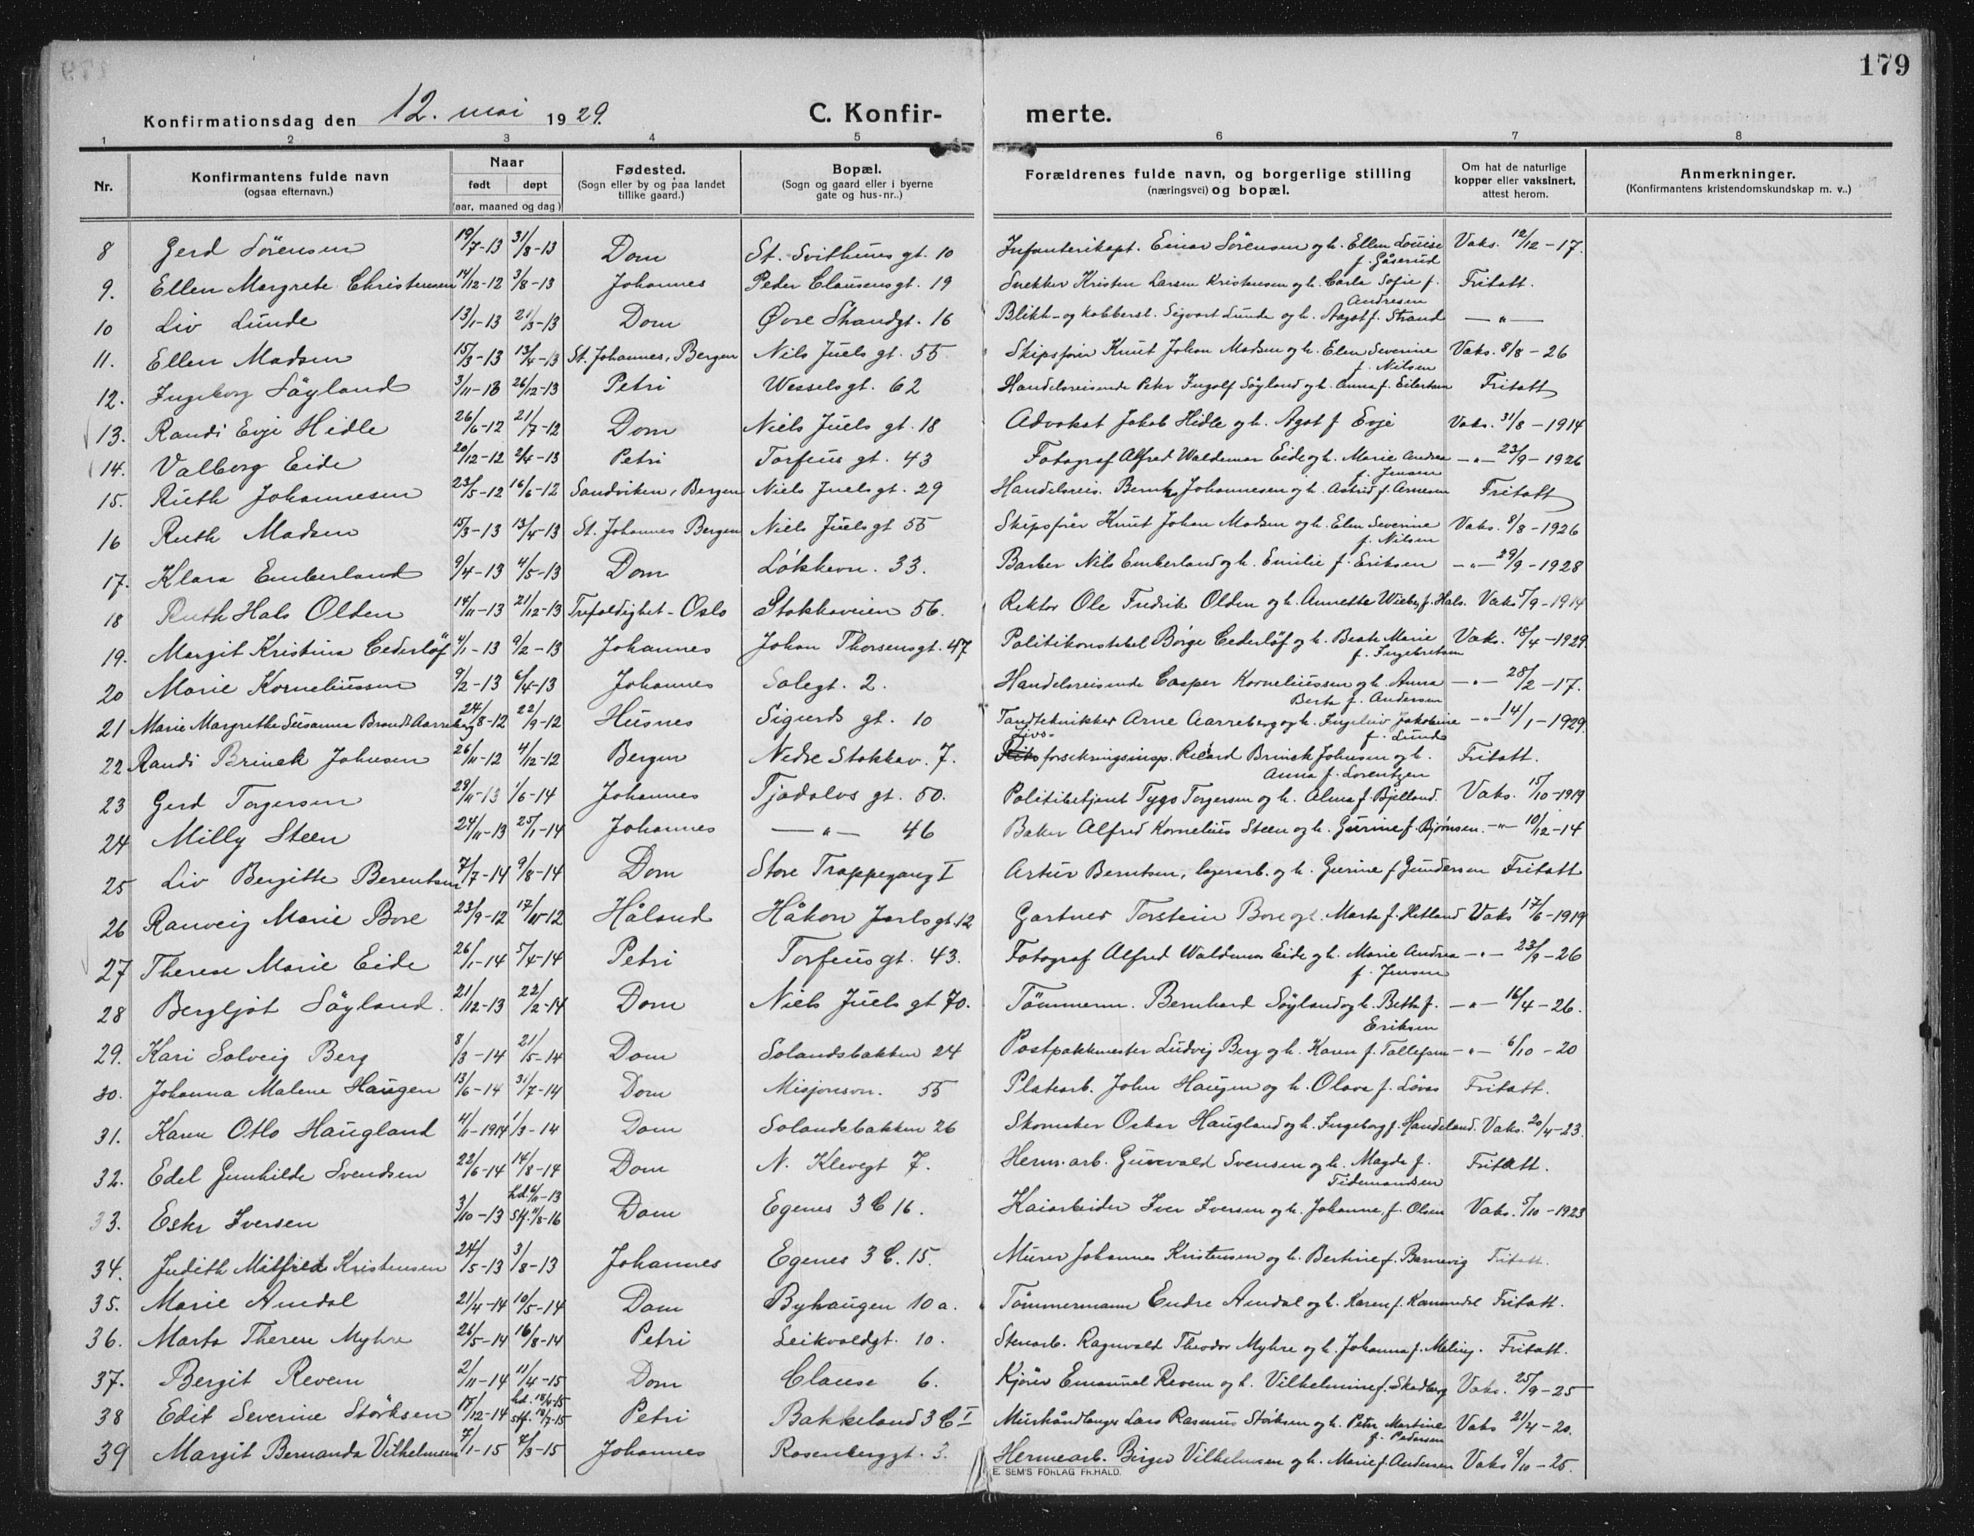 179
Konfirmationsdag den 12. mai 1929. C. Konfirmerte.
1 2 3 4 5 6 7 8
Nr. Konfirmantens fulde navn (ogsaa efternavn.) Naar født døpt (aar, maaned og dag) Fødested. (Sogn eller by og paa landet tillike gaard.) Bopæl. (Sogn og gaard eller i byerne gate og hus-nr..) Forældrenes fulde navn, og borgerlige stilling (næringsvei) og bopæl. Om hat de naturlige kopper eller vaksinert, attest herom. Anmerkninger. (Konfirmantens kristendomskundskap m. v..)
8 Gerd Sörensen 19/7-13 31/8-13 Dom St. Svithuns gt. 10 Infanterikapt. Einar Sörensen og h. Ellen Louise f. Gåserud Vaks. 12/12-17.
9. Ellen Margrete Christensen 14/12-12 3/8-13 Johannes Peder Clausens gt. 19 Snekker Kristen Larsen Kristensen og h. Carla Sofie f. Andresen Fritatt.
10 Liv Lunde 13/1-13 21/3-13 Dom Øvre Strandgt. 16 Blikk- og kobberst. Sigvart Lunde og h. Aagot f. Strand — " —
11. Ellen Madsen 15/3-13 13/4-13 St. Johannes, Bergen Nils Juels gt. 55 Skipsfører Knut Johan Madsen og h. Elen Severine f. Nilsen Vaks. 8/8-26
12. Ingeborg Söyland 3/11-18 26/12-13 Petri Wessels gt. 62 Handelsreisende Peter Ingolf Söyland og h. Anna f. Eilertsen Fritatt
13. Randi Evje Hidle 26/6-12 21/7-12 Dom Niels Juels gt. 18 Advokat Jakob Hidle og h. Agot f Evje Vaks. 31/8-1914
14. Valborg Eide 20/12-12 2/4-13 Petri Torfeus gt. 43 Fotograf Alfred Waldemar Eide og h. Marie Andrea f. Jensen — " — 23/9-1926
15. Ruth Johannesen 23/5-12 16/6-12 Sandviken, Bergen Niels Juels gt. 29 Handelsreis. Bernh. Johannesen og h. Astrid f. Arnesen Fritatt
16 Ruth Madsen 15/3-13 13/4-13 St. Johannes Bergen Niels Juels gt 55 Skipsfører Knut Johan Madsen og h. Elen Severine f. Nilsen Vaks. 8/8-1926
17. Klara Emberland 9/4-13 4/5-13 Dom Løkkevn. 33. Barber Nils Emberland og h. Emilie f. Eriksen — " — 29/9-1928
18 Ruth Hals Olden 14/11-13 21/12-13 Trefoldighet - Oslo Stokkaveien 56. Rektor Ole Fredrik Olden og h. Annette Wieby f. Hals. Vaks 5/9-1914
19. Margit Kristina Cederlöf 4/1-13 9/2-13 Johannes Johan Thorsens gt. 47 Politikonstabel Börge Cederlöf og h. Beate Marie f. Ingebretsen Vaks. 18/4-1929.
20 Marie Korneliussen 9/2-13 6/4-13 Johannes Solegt. 2. Handelsreisende Casper Korneliussen og h. Anna Berta f. Andersen — " — 28/2-17.
21 Marie Margrethe Susanna Brandt Aarreberg 24/8-12 22/9-12 Husnes Sigurds gt. 10 Tandtekniker Arne Aarreberg og h. Ingeleiv Jakobine f. Lunde — " — 14/1-1929.
22 Randi Brinck Johnsen 26/11-12 4/12-12 Bergen Nedre Stokkav. 7. Livsforsikringsinsp. Rikard Brinck Johnsen og h. Anna f. Lorentzen Fritatt.
23 Gerd Torgersen 29/11-13 1/6-14 Johannes Tjodolvs gt. 50. Politibetjent Tygo Torgersen og h. Alma f. Bjelland. Vaks. 15/10-1919
24 Milly Steen 24/11-13 25/1-14 Johannes — " — 46 Baker Alfred Kornelius Steen og h. Gurine f. Bjørnsen. — " — 10/12-14
25 Liv Bergitte Berentsen 7/7-14 9/8-14 Dom Store Trappegang I Artur Berntsen, lagerarb. og h. Gurine f Gundersen Fritatt
26 Ranveig Marie Bore 23/9-12 17/11-12 Håland Håkon Jarls gt. 12 Gartner Torstein Bore og h. Marta f. Hetland Vaks 17/6-1919
27 Therese Marie Eide 26/1-14 5/4-14 Petri Torfeus gt. 43. Fotograf Alfred Waldemar Eide og h. Marie Andrea f. Jensen — " — 23/9-26
28 Bergljot Söyland. 21/12-13 22/2-14 Dom Niels Juels gt 70. Tömmerm. Bernhard Söyland og h. Betta f. Eriksen — " — 16/4-26.
29. Kari Solveig Berg 8/3-14 21/5-14 Dom Solandsbakken 24 Postpakkmester Ludvig Berg og h. Karen f. Tallefsen — " — 6/10-20
30. Johanna Malene Haugen 13/6-14 31/7-14 Dom Misjonsvn. 55 Platearb. John Haugen og h. Olava f. Løvås Fritatt.
31. Karen Otto Haugland 4/1-1914 1/3-14 Dom Solandsbakken 26 Skomaker Oskar Haugland og h. Ingeborg f. Handeland. Vaks. 20/4-23.
32. Edel Gunhilde Svendsen 22/6-14 14/8-14 Dom N. Klevegt 7. Herm.arb. Gunvald Svensen og h. Magda f. Tidemandsen Fritatt.
33. Ester Iversen 3/10-13 hd. 6/11-13 Stf. 11/8-16 Dom Egenes 3 C 16. Kaiarbeider Iver Iversen og h. Johanne f. Olsen Vaks. 5/10-1923
34. Judith Mitfred Kristensen 24/5-13 3/8-13 Johannes Egenes 3 C. 15. Murer Johannes Kristensen og h. Bertine f. Barnevig Fritatt.
35. Marie Amdal 21/4-14 10/5-14 Dom Byhaugen 10 a. Tømmermann Endre Amdal og h. Karen f. Kammedal Fritatt.
36. Marta Therese Myhre 26/5-14 16/8-14 Petri Leikvoldgt. 10. Stenarb. Ragnvald Theodor Myhre og h. Johanna f. Meling. Fritatt.
37. Bergit Revem 2/11-14 11/4-15 Dom Clause 6. Kjører Emanuel Revem og h. Vilhelmine f. Skadberg Vaks. 25/9-25
38 Edit Severine Störksen 17/12-14 hd. 18/4-15 Stf. 18/7-15 Petri Bakkeland 3 C I Murhåndlanger Lars Rasmus Störksen og h. Petra Martine f. Pedersen Vaks 21/4-20.
39 Margit Bernanda Vilhelmsen 7/1-15 7/3-15 Johannes Rosenberggt. 3. Hermearb. Birger Vilhelmsen og h. Marie f. Andersen Vaks 9/10-25.
E. SEM'S FORLAG FR.HALD.